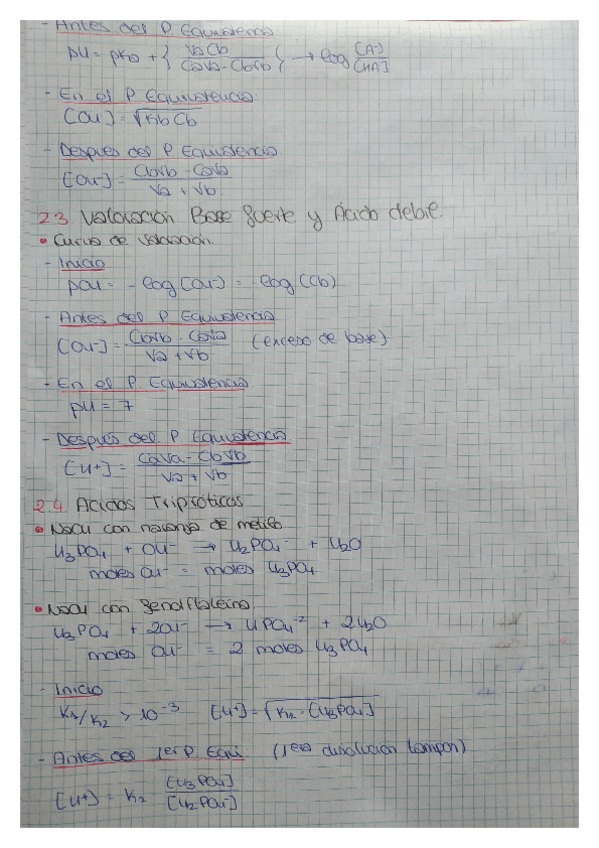 - Antes del P Equivalencia
pH = pKa + { VbCb / CaVa - CbVb } → log [A-]/[HA]
- En el P Equivalencia
[OH-] = √Kb Cb
- Despues del P Equivalencia
[OH-] = CbVb - CaVa / Va + Vb
2.3 Valoración Base fuerte y Ácido debil.
• Curva de valoración
- Inicio
pOH = - log [OH-] = - log (Cb)
- Antes del P Equivalencia
[OH-] = CbVb - CaVa / Va + Vb (exceso de base)
- En el P Equivalencia
pH = 7
- Después del P Equivalencia
[H+] = CaVa - CbVb / Va + Vb
2.4 Acidos Tripróticos
• NaOH con naranja de metilo
H3PO4 + OH- → H2PO4- + H2O
moles OH- = moles H3PO4
• NaOH con fenolftaleina
H3PO4 + 2OH- → HPO4-2 + 2H2O
moles OH- = 2 moles H3PO4
- Inicio
K1/K2 > 10-3 [H+] = √Ka · [H3PO4]
- Antes del 1er P. Equi (1era disolución tampon)
[H+] = K1 [H3PO4] / [H2PO4-]